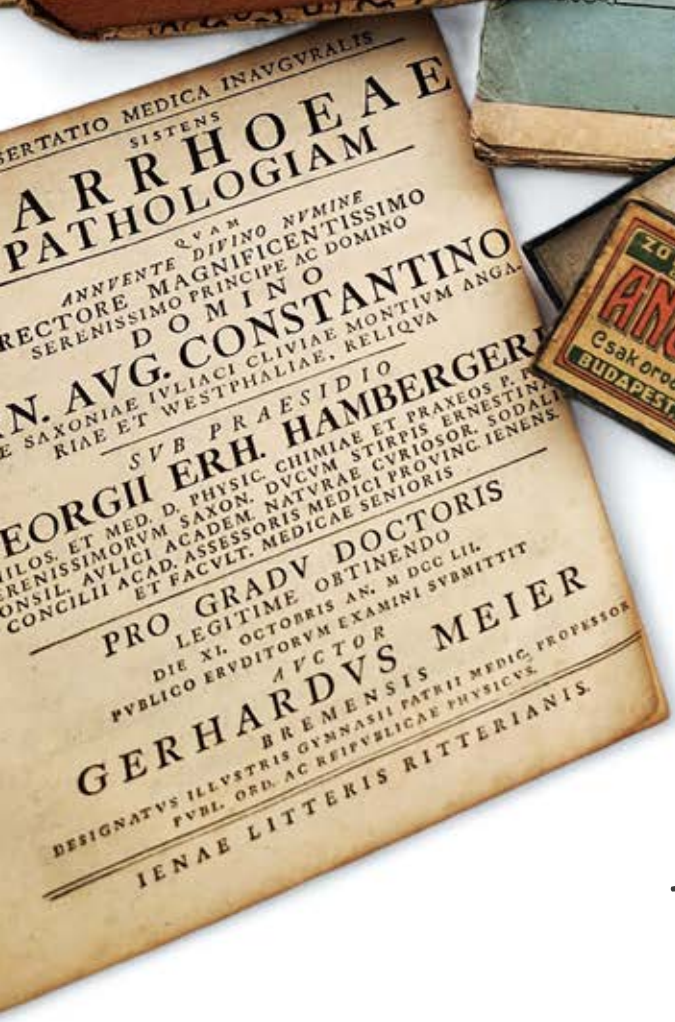 SERTATIO MEDICA INAVGVRALIS
SISTENS
ARRHOEAE
PATHOLOGIAM
QVAM
ANNVENTE DIVINO NVMINE
RECTORE MAGNIFICENTISSIMO
SERENISSIMO PRINCIPE AC DOMINO
DOMINO
N. AVG. CONSTANTINO
E SAXONIAE IVLIACI CLIVIAE MONTIVM ANGA-
RIAE ET WESTPHALIAE, RELIQVA
SVB PRAESIDIO
EORGII ERH. HAMBERGERI
HILOS. ET MED. D. PHYSIC. CHIMIAE ET PRAXEOS P. P.
ERENISSIMORVM SAXON. DVCVM STIRPIS ERNESTINAE
ONSIL. AVLICI ACADEM. NATVRAE CVRIOSOR. SODALI
CONCILII ACAD. ASSESSORIS MEDICI PROVINC. IENENS.
ET FACVLT. MEDICAE SENIORIS
PRO GRADV DOCTORIS
LEGITIME OBTINENDO
DIE XI. OCTOBRIS AN. M DCC LII.
PVBLICO ERVDITORVM EXAMINI SVBMITTIT
AVCTOR
GERHARDVS MEIER
BREMENSIS
DESIGNATVS ILLVSTRIS GYMNASII PATRII MEDIC. PROFESSOR
PVBL. ORD. AC REIPVBLICAE PHYSICVS.
IENAE LITTERIS RITTERIANIS.
ZO
AN
Csak orvo
BUDAPEST